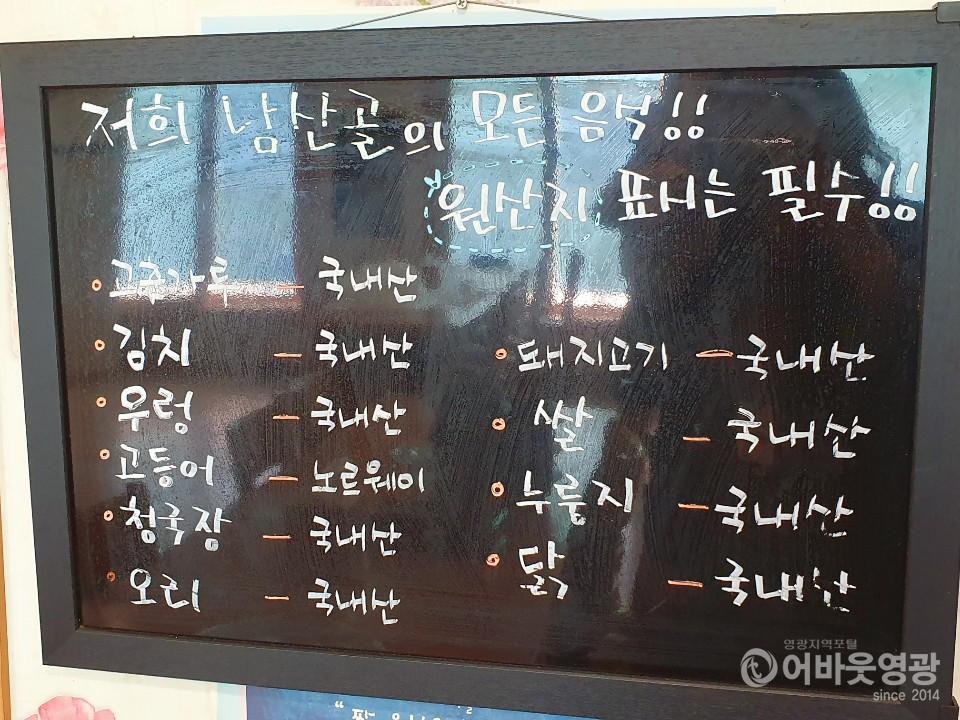 저희 남산골의 모든 음식!!
원산지 표시는 필수!!
고추가루 - 국내산
김치 - 국내산
우렁 - 국내산
고등어 - 노르웨이
청국장 - 국내산
오리 - 국내산
돼지고기 - 국내산
쌀 - 국내산
누룽지 - 국내산
닭 - 국내산
영광지역포털
어바웃영광
since 2014